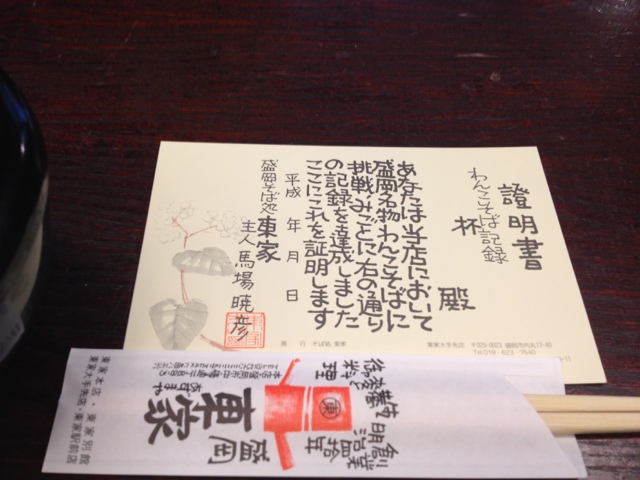 證明書
わんこそば記録
杯
殿
あなたは当店において
盛岡名物わんこそばに
挑戦、みごとに右の通り
の記録を達成しました
ここにこれを証明します
平成 年 月 日
盛岡そば処 東家
主人 馬場暁彦
発行 そば処 東家
東家大手先店
Tel.019-623-7540
創業
明治四拾年
蕎麦と
料理
東
盛岡
東家
あづまや
東家本店・東家別館
東家大手先店・東家駅前店